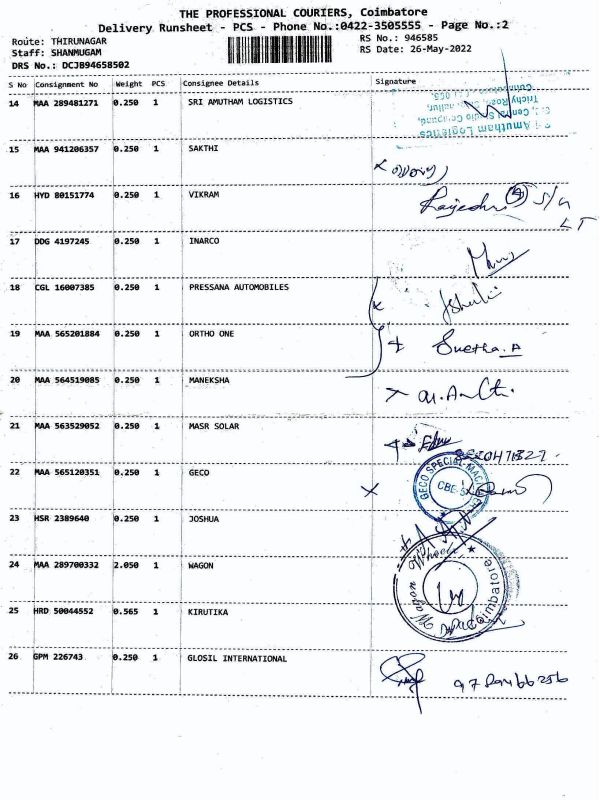 THE PROFESSIONAL COURIERS, Coimbatore
Delivery Runsheet - PCS - Phone No.:0422-3505555 - Page No.:2
Route: THIRUNAGAR
Staff: SHANMUGAM
DRS No.: DCJB94658502
RS No.: 946585
RS Date: 26-May-2022
S No Consignment No Weight PCS Consignee Details Signature
14 MAA 289481271 0.250 1 SRI AMUTHAM LOGISTICS
Amutham Logistics
Trichy Road,
15 MAA 941206357 0.250 1 SAKTHI
16 HYD 80151774 0.250 1 VIKRAM
17 DDG 4197245 0.250 1 INARCO
18 CGL 16007385 0.250 1 PRESSANA AUTOMOBILES
19 MAA 565201884 0.250 1 ORTHO ONE
Swetha.A
20 MAA 564519085 0.250 1 MANEKSHA
21 MAA 563529052 0.250 1 MASR SOLAR
22 MAA 565120351 0.250 1 GECO
GECO SPECIAL
CBE
23 HSR 2389640 0.250 1 JOSHUA
24 MAA 289700332 2.050 1 WAGON
Wagon Wheels
Coimbatore
25 HRD 50044552 0.565 1 KIRUTIKA
26 GPM 226743 0.250 1 GLOSIL INTERNATIONAL